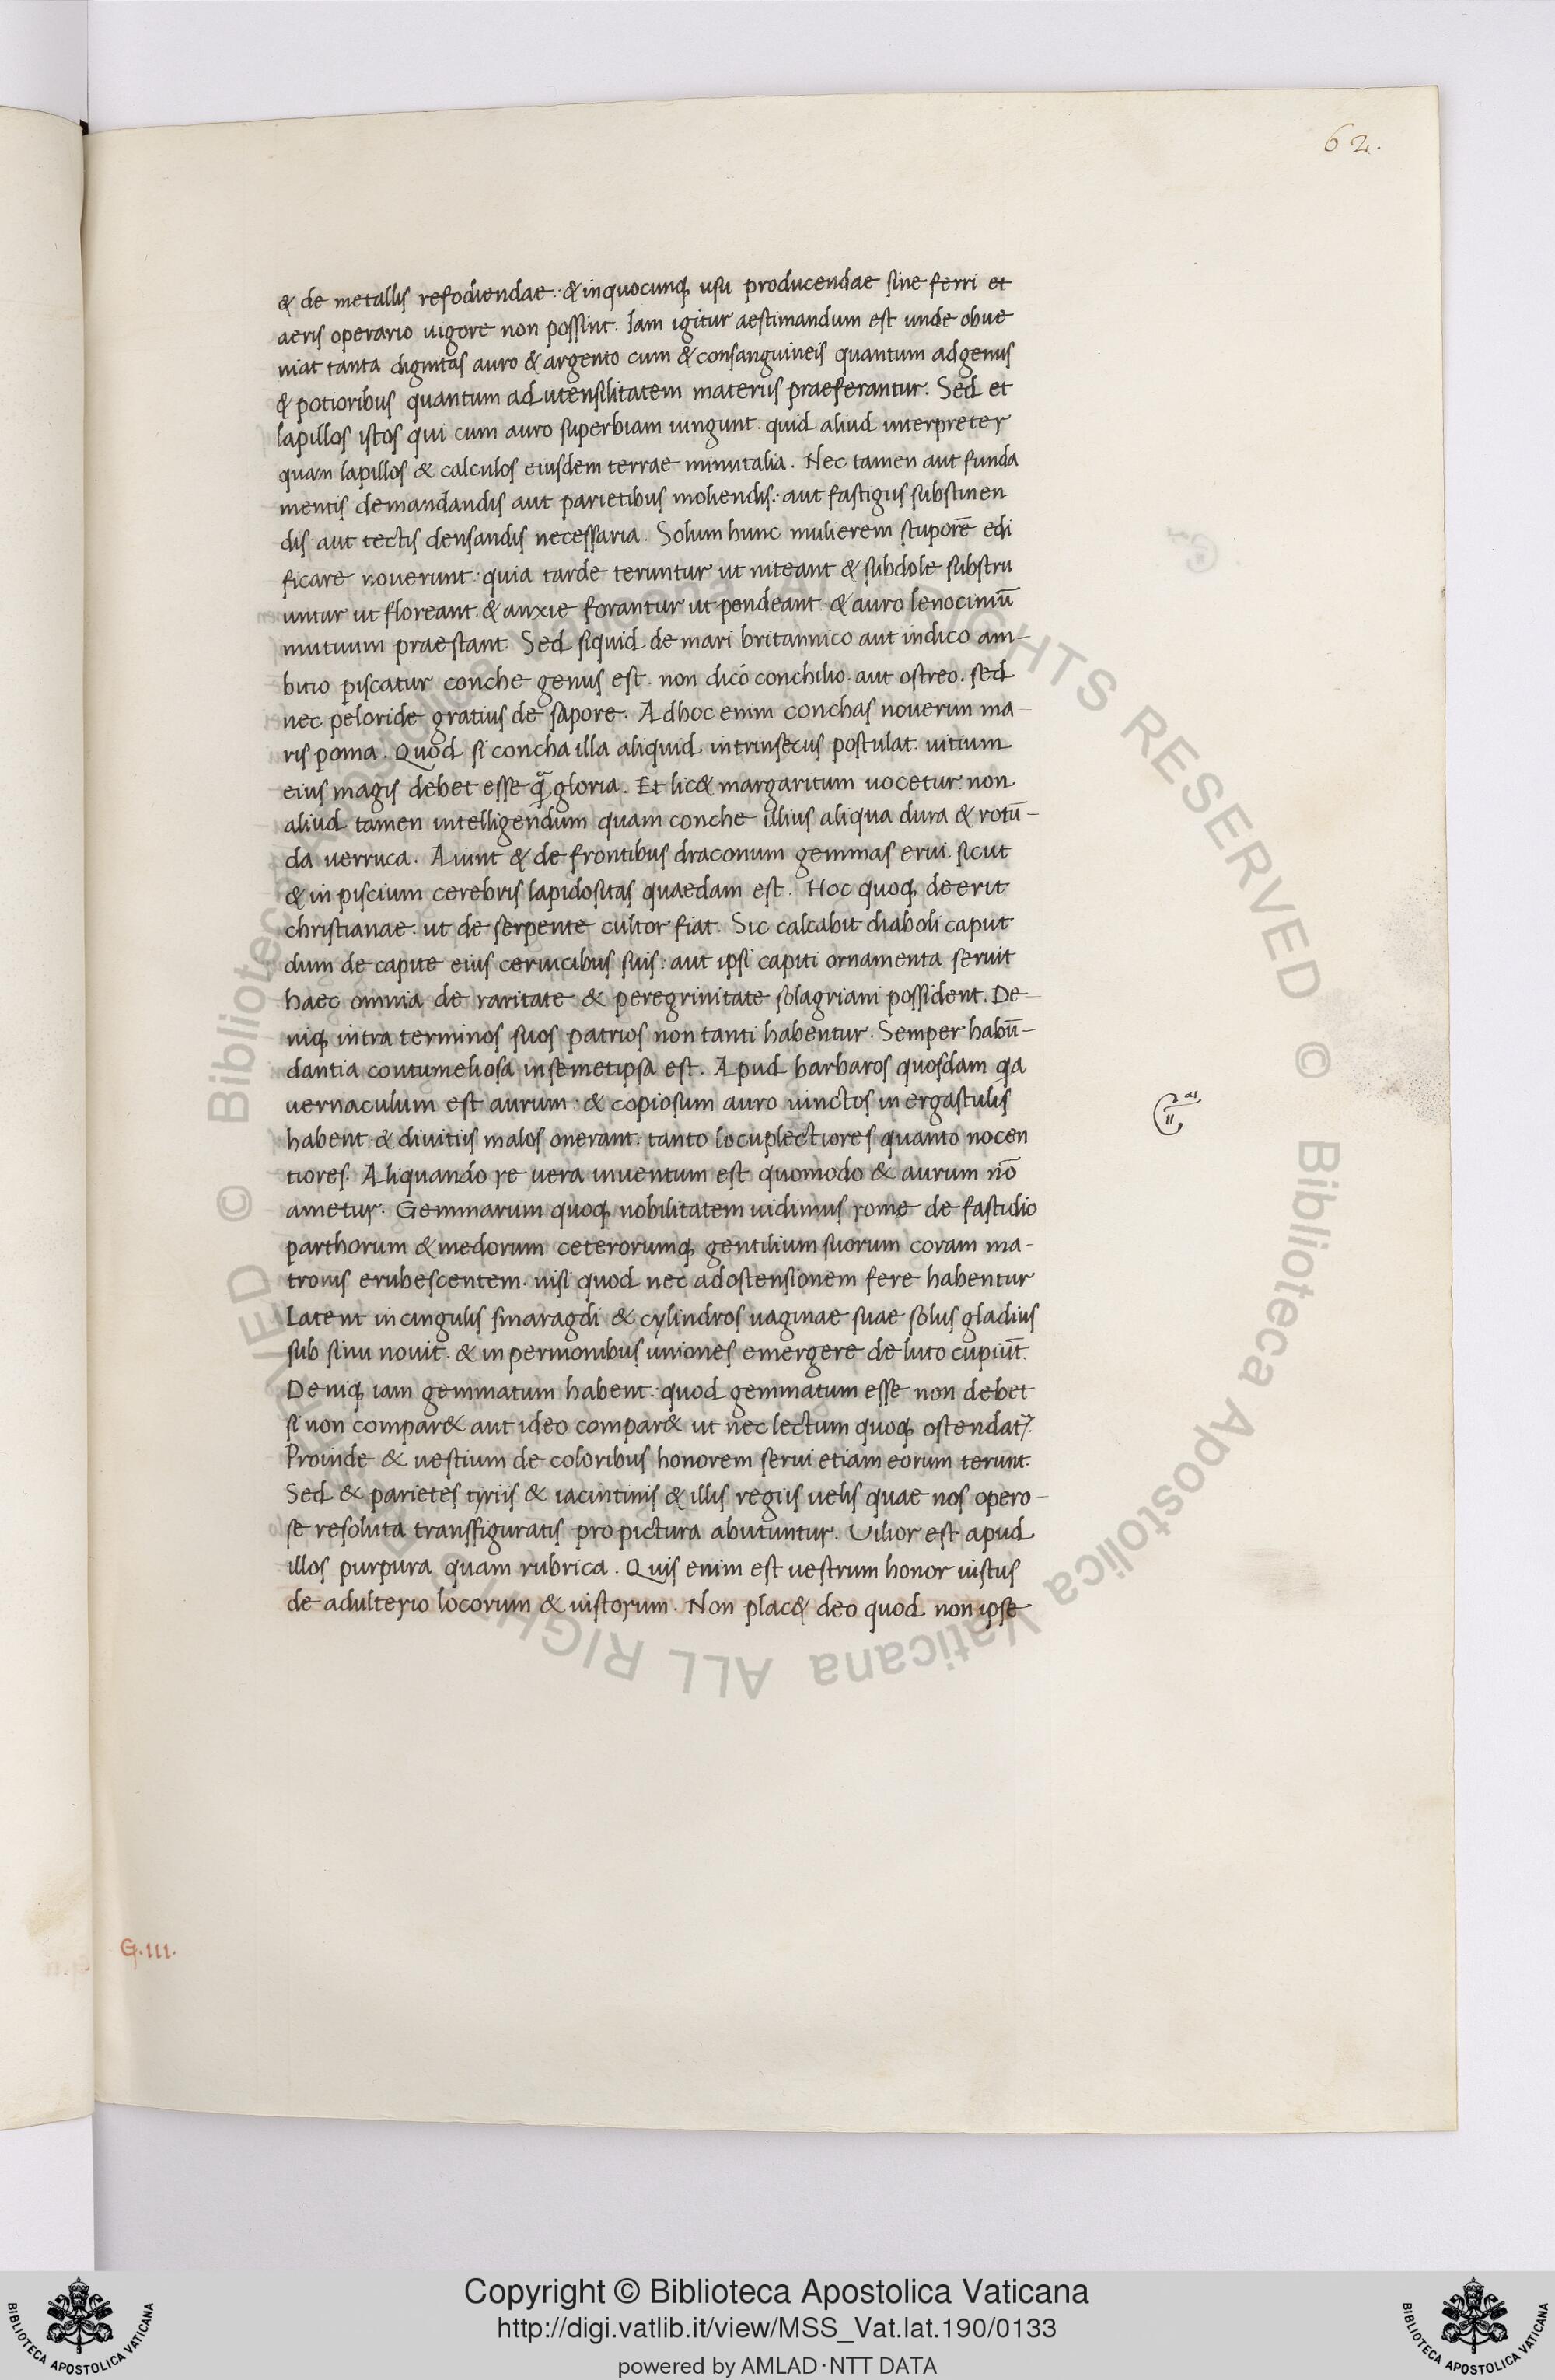 62.
& de metallis refodiendae: & inquocunq; usu producendae sine ferri et
aeris operario uigore non possint. Iam igitur aestimandum est unde obue
niat tanta dignitas auro & argento cum & consanguineis quantum adgenus
& potioribus quantum ad utensilitatem materiis praeferantur. Sed et
lapillos istos qui cum auro superbiam iungunt. quid aliud interpreter
quam lapillos & calculos eiusdem terrae minutalia. Nec tamen aut funda
mentis demandandis aut parietibus moliendis: aut fastigiis substinen
dis aut tectis densandis necessaria. Solum hunc mulierem stuporē edi
ficare nouerunt: quia tarde teruntur ut niteant & subdole substru
untur ut floreant. & anxie forantur ut pendeant: & auro lenociniū
mutuum praestant. Sed siquid de mari britannico aut indico am-
bitio piscatur conche genus est. non dico conchilio. aut ostreo. sed
nec peloride gratius de sapore. Adhoc enim conchas nouerun ma
ris poma. Quod si concha illa aliquid intrinsecus postulat. uitium
eius magis debet esse q̃ gloria. Et lic& margaritum uocetur: non
aliud tamen intelligendum quam conche illius aliqua dura & rotū-
da uerruca. Aiunt & de frontibus draconum gemmas erui. sicut
& in piscium cerebris lapidositas quaedam est. Hoc quoq; deerit
christianae. ut de serpente cultor fiat. Sic calcabit diaboli caput
dum de capite eius ceruicibus suis: aut ipsi capiti ornamenta seruit
haec omnia de raritate & peregrinitate solagriani possident. De-
niq; intra terminos suos patrios non tanti habentur. Semper habū-
dantia contumeliosa insemetipsa est. Apud barbaros quosdam qa
uernaculum est aurum: & copiosum auro uinctos in ergastulis
habent & diuitiis malos onerant: tanto locuplectiores quanto nocen
tiores. Aliquando re uera inuentum est quomodo & aurum nō
ametur. Gemmarum quoq; nobilitatem uidimus rome de fastidio
parthorum & medorum ceterorumq; gentilium suorum coram ma-
tronis erubescentem. nisi quod nec adostensionem fere habentur
Latent in cingulis smaragdi & cylindros uaginae suae solus gladius
sub sinu nouit. & in permonibus uniones emergere de luto cupiūt.
Deniq; iam gemmatum habent: quod gemmatum esse non debet
si non compar& aut ideo compar& ut nec lectum quoq; ostendat?.
Proinde & uestium de coloribus honorem serui etiam eorum terunt.
Sed & parietes tyriis & iacintinis & illis regiis uelis quae nos opero-
se resoluta transfiguratis pro pictura abutuntur. Uilior est apud
illos purpura quam rubrica. Quis enim est uestrum honor iustus
de adulterio locorum & iustorum. Non plac& deo quod non ipse
G.III.
© Biblioteca Apostolica Vaticana ALL RIGHTS RESERVED © Biblioteca Apostolica Vaticana ALL RIGHTS RESERVED
Copyright © Biblioteca Apostolica Vaticana
http://digi.vatlib.it/view/MSS_Vat.lat.190/0133
powered by AMLAD·NTT DATA
BIBLIOTECA APOSTOLICA VATICANA
BIBLIOTECA APOSTOLICA VATICANA